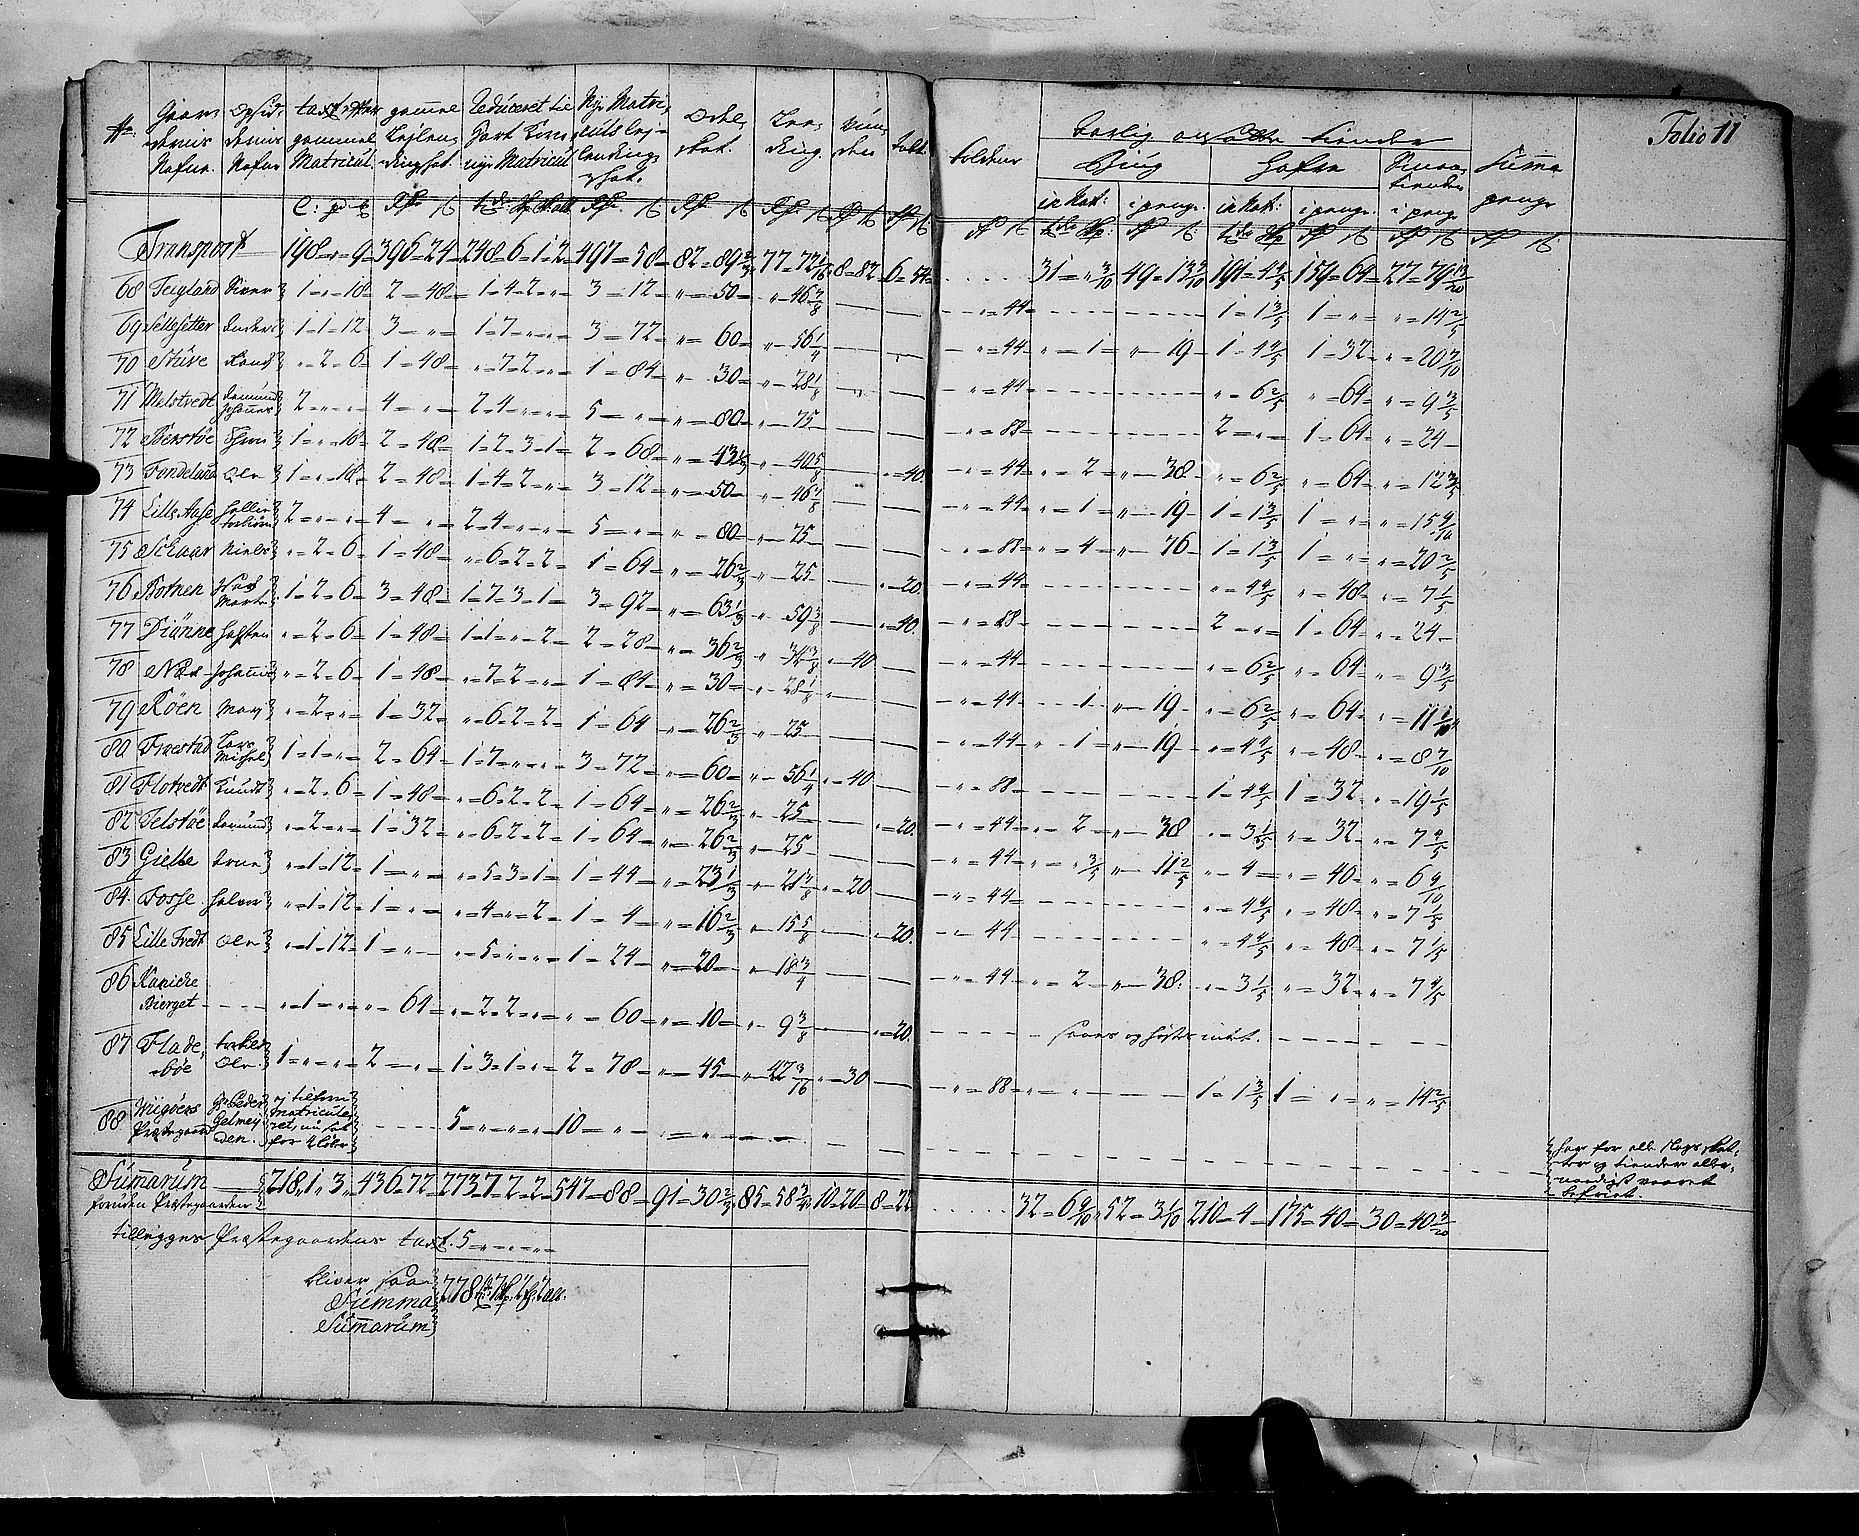 Folio 11
No
Gaar- dernis Nafne.
Opsid- dernis Nafne
taxt efter gammel Matricul.
gammel Leylen- dingskat.
Reduceret til Hart Korn nye Matricul
Nye Matri- culs Lej- lendings skat.
Odel skat.
Leedding.
toldt.
tolder
aarlig ansatte tiender
Biug
Hafre
Summa
in Nat: i penge. in Nat: i penge. i penge penge
Transport 198 „ 9 396 24 248 6 1 2 497 58 82 89 2/3 77 72 1/16 8 82 6 54 31 „ 3/10 49 13 7/10 191 4 4/5 159 64 27 79 13/20
68 Teigland Siver 1 „ 18 2 48 1 4 2 „ 3 12 „ 50 „ 46 7/8 „ 44 1 1 3/5 1 „ „ 14 2/5
69 Sellesetter Anders 1 1 12 3 „ 1 7 „ „ 3 72 „ 60 „ 56 1/4 „ 44 „ 1 „ 19 1 4 4/5 1 32 „ 20 7/10
70 Stuve Knud „ 2 6 1 48 „ 7 2 „ 1 84 „ 30 „ 28 1/8 „ 44 „ 6 2/5 „ 64 „ 9 3/5
71 Melstvedt Aamund Johanes 2 „ „ 4 „ 2 4 „ „ 5 „ „ 80 „ 75 „ 88 2 „ 1 64 „ 24
72 Berstöe 1 „ 18 2 48 1 2 3 1 2 68 „ 43 1/3 „ 40 5/8 „ 40 „ 44 „ 2 „ 38 „ 6 2/5 „ 64 „ 12 3/5
73 Fondeland Ole 1 „ 18 2 48 1 4 2 „ 3 12 „ 50 „ 46 7/8 „ 44 „ 1 „ 19 1 1 3/5 1 „ „ 15 9/10
74 Lille Aase 2 „ „ 4 „ 2 4 „ „ 5 „ „ 80 „ 75 „ 88 „ 4 „ 76 1 1 3/5 1 „ „ 20 2/5
75 Schaar Niels „ 2 6 1 48 „ 6 2 2 1 64 „ 26 2/3 „ 25 „ 20 „ 44 „ 4 4/5 „ 48 „ 7 1/5
76 Rotnen Morten 1 2 6 3 48 1 7 3 1 3 92 „ 63 1/3 „ 59 3/8 „ 40 „ 88 2 „ 1 64 „ 24
77 Diönne Hosten „ 2 6 1 48 1 1 „ 2 2 28 „ 36 2/3 „ 34 3/8 „ 40 „ 44 „ 6 2/5 „ 64 „ 9 3/5
78 Næs Johannis „ 2 6 1 48 „ 7 2 „ 1 84 „ 30 „ 28 1/8 „ 44 „ 1 „ 19 „ 6 2/5 „ 64 „ 11 1/10
79 Röen „ 2 „ 1 32 „ 6 2 2 1 64 „ 26 2/3 „ 25 „ 44 „ 1 „ 19 „ 4 4/5 „ 48 „ 8 7/10
80 Lars Michel 1 1 „ 2 64 1 7 „ „ 3 72 „ 60 „ 56 1/4 „ 40 „ 88 1 4 4/5 1 32 „ 19 1/5
81 Flotvedt Knudt „ 2 6 1 48 „ 6 2 2 1 64 „ 26 2/3 „ 25 „ 20 „ 44 „ 2 „ 38 „ 3 1/5 „ 32 „ 7 4/5
82 Telstöe Aamund „ 2 „ 1 32 „ 6 2 2 1 64 „ 26 2/3 „ 25 „ 44 „ „ 3/5 „ 11 2/5 „ 4 „ 40 „ 6 9/10
83 Gielle „ 1 12 1 „ „ 5 3 1 1 44 „ 23 1/3 „ 21 7/8 „ 20 „ 44 „ 4 4/5 „ 48 „ 7 1/5
84 Fosse Halvor „ 1 12 1 „ „ 4 „ 2 1 4 „ 16 2/3 „ 15 5/8 „ 20 „ 44 „ 4 4/5 „ 48 „ 7 1/5
85 Lille Tvedt Ole „ 1 12 1 „ „ 5 „ „ 1 24 „ 20 „ 18 3/4 „ 44 „ 2 „ 38 „ 3 1/5 „ 32 „ 7 4/5
86 Kaniche Bierget „ 1 „ „ 64 „ 2 2 „ „ 60 „ 10 „ 9 3/8 „ 20 saaer og höster intet.
87 Flade- böe Ole 1 „ „ 2 „ 1 3 1 „ 2 78 „ 45 „ 42 3/16 „ 30 „ 88 „ „ 1 1 3/5 1 „ „ 14 2/5
88 Præstegaard Hr Peder Gelmeyden. ej tilforn Matriculeret, nu sat for 5 „ „ „ 10 „ „ „
har for alle Kongs skatter og tiender alle- været befriet.
Summarum foruden Præstegaarden 218 1 3 436 72 273 7 2 2 547 88 91 30 2/3 85 58 3/4 10 20 8 22 32 6 9/10 52 3 1/10 210 4 175 40 30 40 3/20
tillegges Præstegaardens taxt. 5 „ „ „
bliver saa Summa Summarum 278 7 2 2